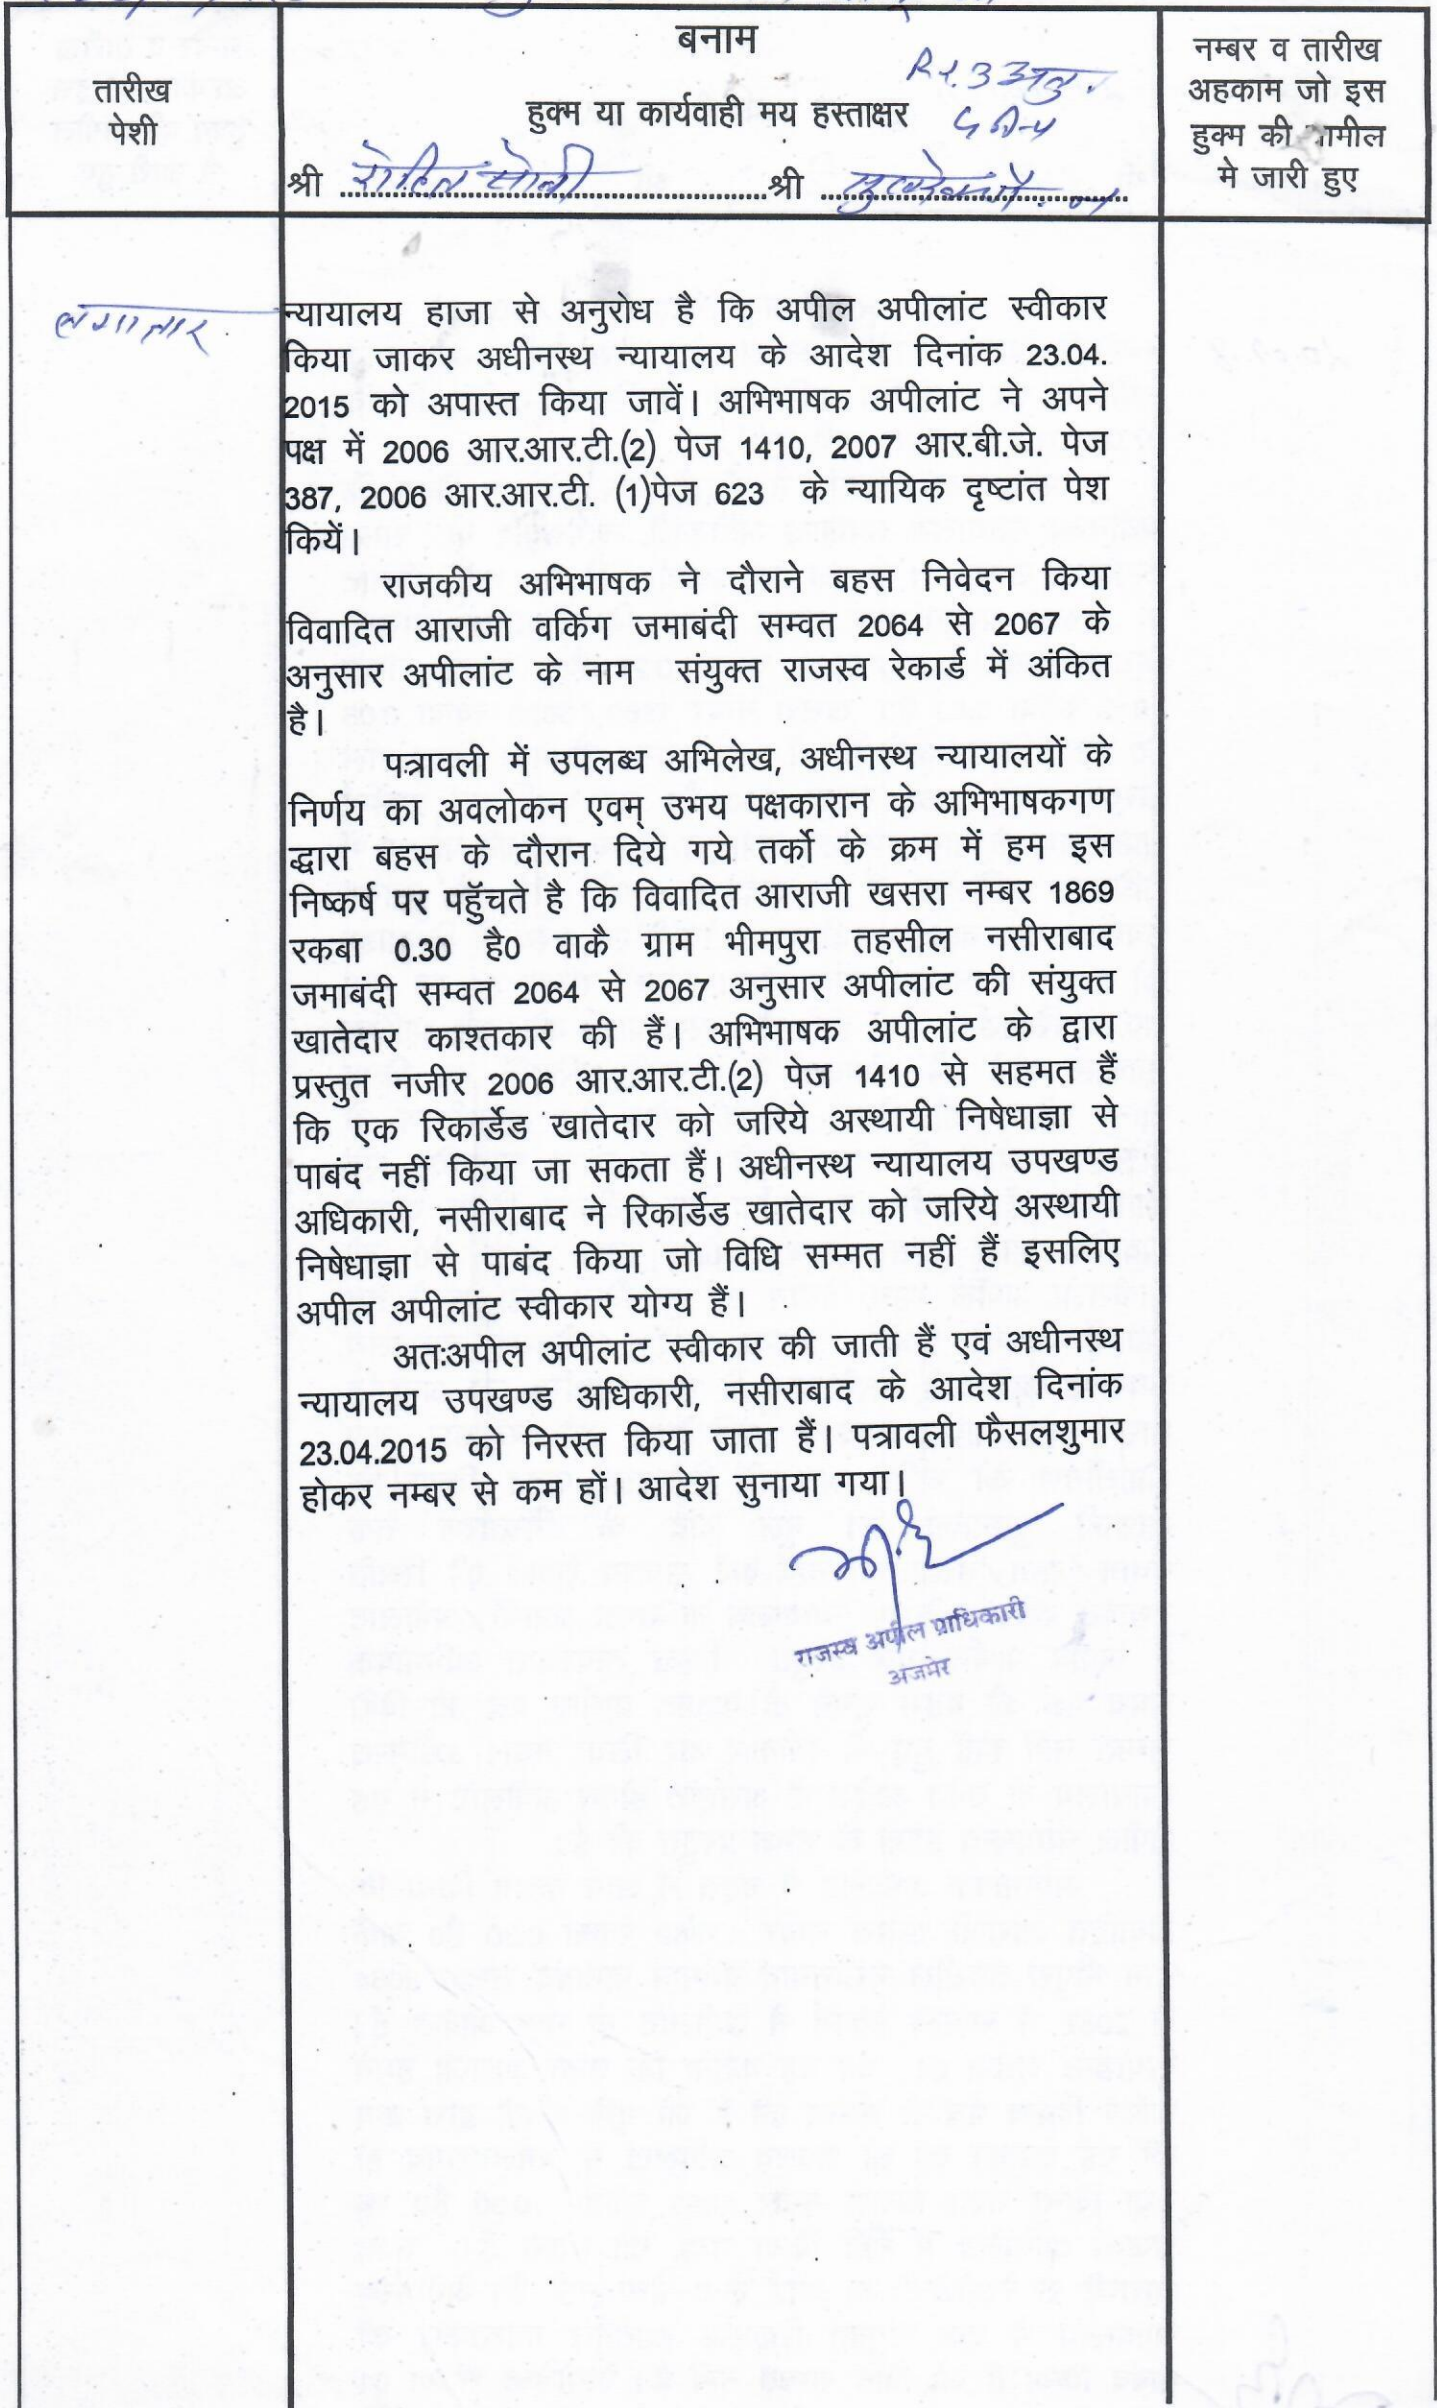 बनाम
तारीख
पेशी
हुक्म या कार्यवाही मय हस्ताक्षर
नम्बर व तारीख
अहकाम जो इस
हुक्म की तामील
मे जारी हुए
श्री रोहित सोनी श्री
लगातार
न्यायालय हाजा से अनुरोध है कि अपील अपीलांट स्वीकार
किया जाकर अधीनस्थ न्यायालय के आदेश दिनांक 23.04.
2015 को अपास्त किया जावें। अभिभाषक अपीलांट ने अपने
पक्ष में 2006 आर.आर.टी.(2) पेज 1410, 2007 आर.बी.जे. पेज
387, 2006 आर.आर.टी. (1)पेज 623 के न्यायिक दृष्टांत पेश
कियें।
राजकीय अभिभाषक ने दौराने बहस निवेदन किया
विवादित आराजी वर्किग जमाबंदी सम्वत 2064 से 2067 के
अनुसार अपीलांट के नाम संयुक्त राजस्व रेकार्ड में अंकित
है।
पत्रावली में उपलब्ध अभिलेख, अधीनस्थ न्यायालयों के
निर्णय का अवलोकन एवम् उभय पक्षकारान के अभिभाषकगण
द्धारा बहस के दौरान दिये गये तर्को के क्रम में हम इस
निष्कर्ष पर पहुॅचते है कि विवादित आराजी खसरा नम्बर 1869
रकबा 0.30 है0 वाकै ग्राम भीमपुरा तहसील नसीराबाद
जमाबंदी सम्वत 2064 से 2067 अनुसार अपीलांट की संयुक्त
खातेदार काश्तकार की हैं। अभिभाषक अपीलांट के द्वारा
प्रस्तुत नजीर 2006 आर.आर.टी.(2) पेज 1410 से सहमत हैं
कि एक रिकार्डेड खातेदार को जरिये अस्थायी निषेधाज्ञा से
पाबंद नहीं किया जा सकता हैं। अधीनस्थ न्यायालय उपखण्ड
अधिकारी, नसीराबाद ने रिकार्डेड खातेदार को जरिये अस्थायी
निषेधाज्ञा से पाबंद किया जो विधि सम्मत नहीं हैं इसलिए
अपील अपीलांट स्वीकार योग्य हैं।
अतःअपील अपीलांट स्वीकार की जाती हैं एवं अधीनस्थ
न्यायालय उपखण्ड अधिकारी, नसीराबाद के आदेश दिनांक
23.04.2015 को निरस्त किया जाता हैं। पत्रावली फैसलशुमार
होकर नम्बर से कम हों। आदेश सुनाया गया।
राजस्व अपील प्राधिकारी
अजमेर